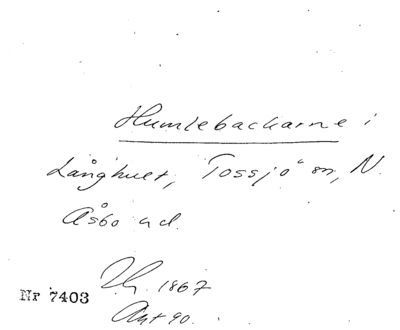 Humlebackarne i
Långhult, Tossjö sn, N.
Åsbo hd.
1867
Nr 7403
Ant 90.